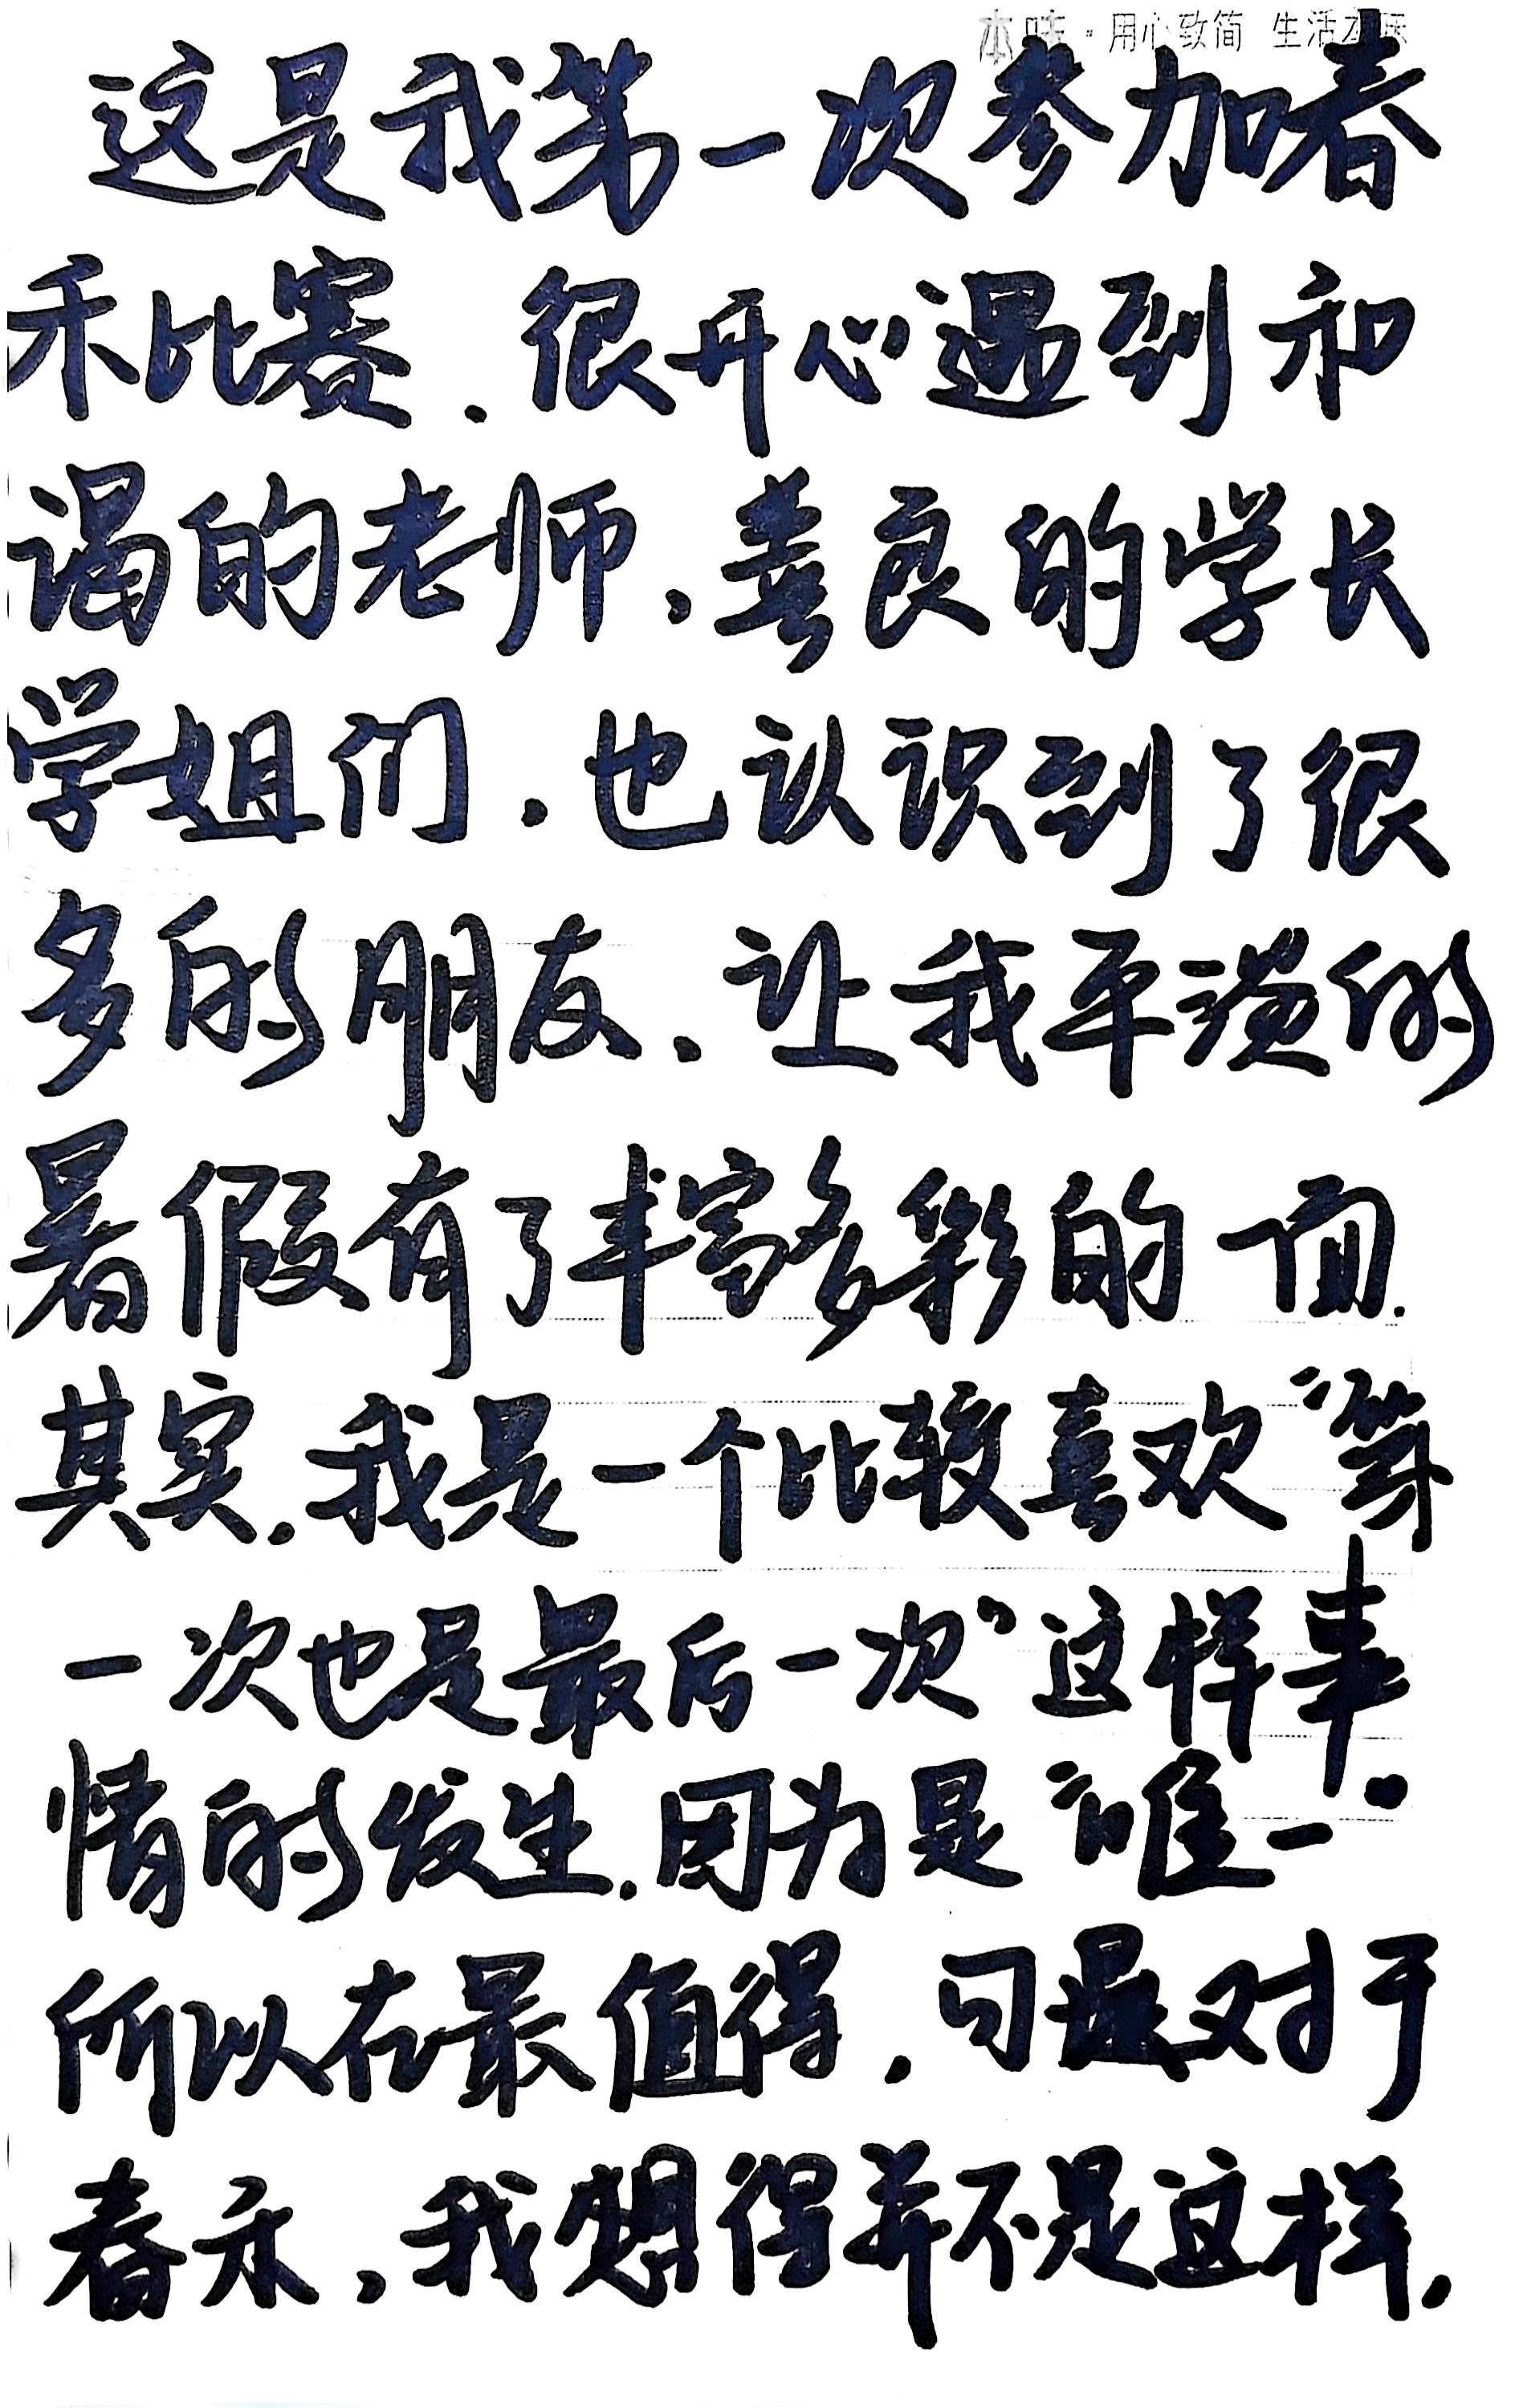 本味·用心致简 生活本味
这是我第一次参加春
禾比赛.很开心遇到和
谒的老师、善良的学长
学姐们.也认识到了很
多的朋友、让我平淡的
暑假有了丰富多彩的一面.
其实.我是一个比较喜欢“第
一次也是最后一次”这样事
情的发生.因为是“唯一”
所以在最值得.可是对于
春禾、我想得并不是这样.